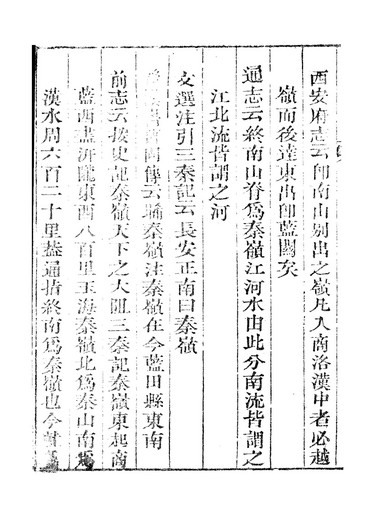 西安府志云卽南山别出之嶺凡入商洛漢中者必越
嶺而後達東出卽藍關矣
通志云終南山脊爲秦嶺江河水由此分南流皆謂之
江北流皆謂之河
文選注引三秦記云長安正南曰秦嶺
傳云踰秦嶺注秦嶺在今藍田縣東南
前志云按史記秦嶺天下之大阻三秦記秦嶺東起商
藍西盡汧隴東西八百里玉海秦嶺北爲秦山南爲
漢水周六百二十里葢通指終南爲秦嶺也今